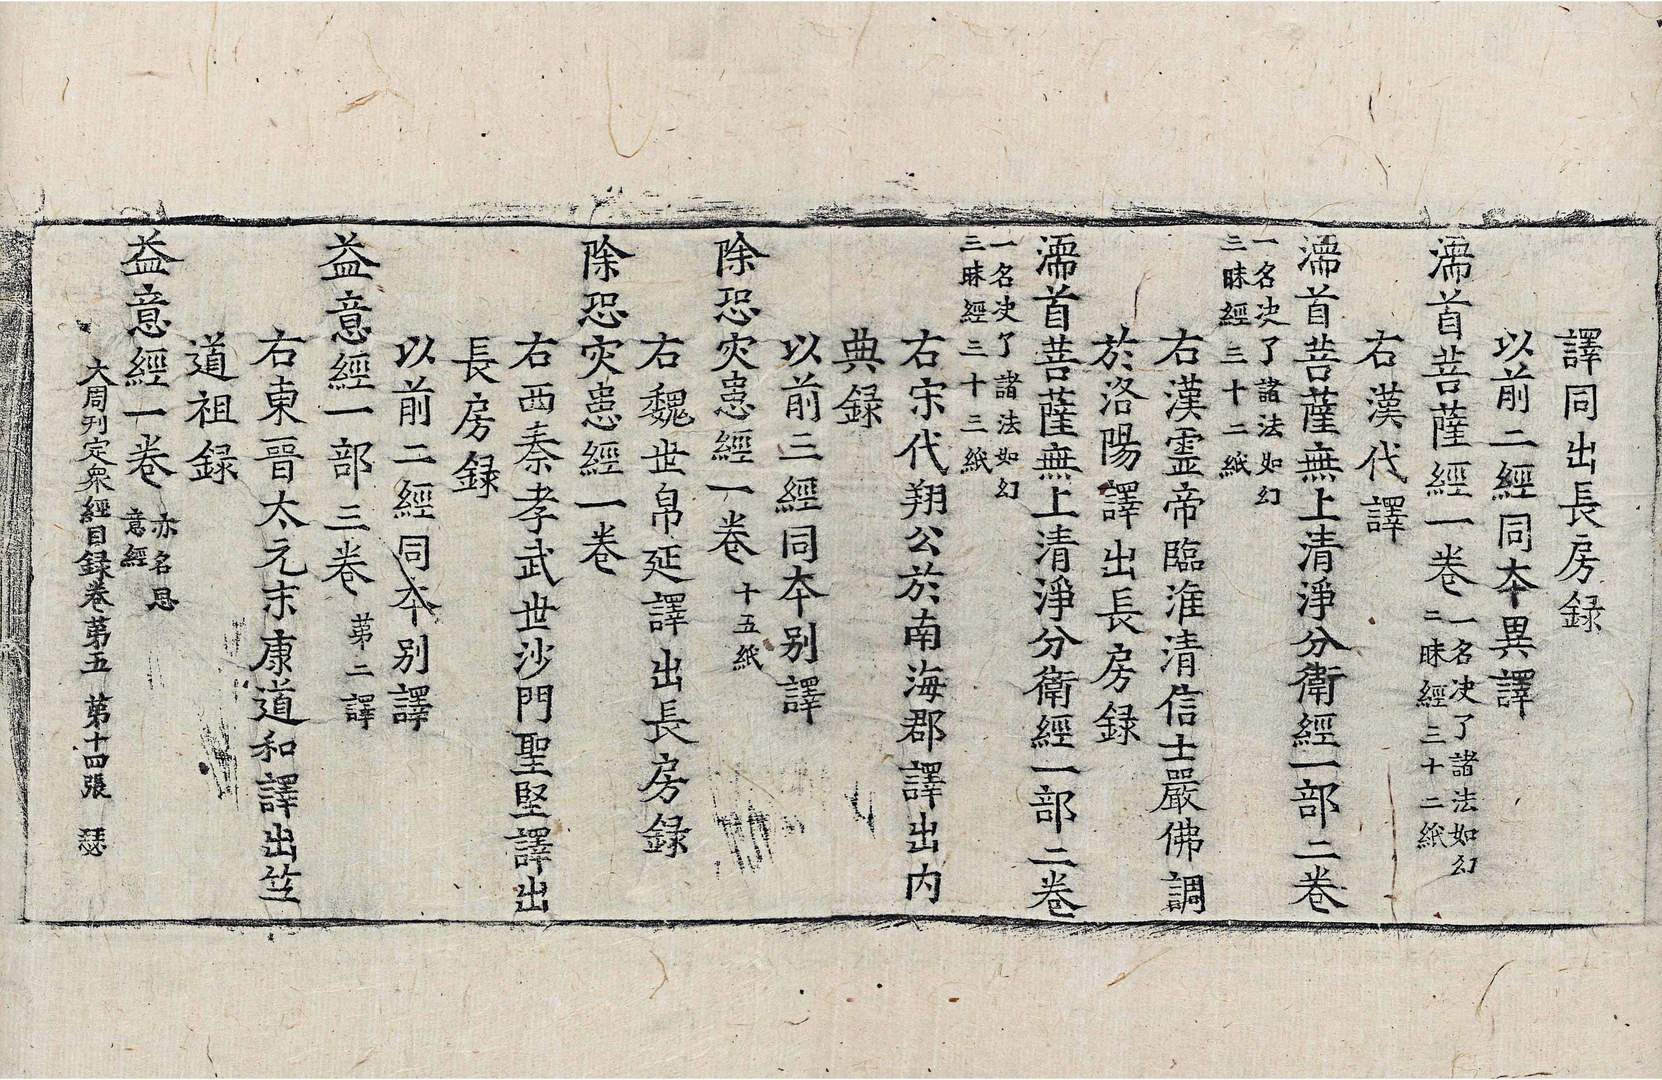 譯同出長房録
以前二經同本異譯
濡首菩薩經一卷 一名决了諸法如幻三昧經三十二紙
右漢代譯
濡首菩薩無上清淨分衛經一部二卷
一名决了諸法如幻三昧經三十二紙
右漢靈帝臨淮清信士嚴佛調
於洛陽譯出長房録
濡首菩薩無上清淨分衛經一部二卷
一名决了諸法如幻三昧經三十三紙
右宋代翔公於南海郡譯出内
典録
以前三經同本别譯
除恐灾患經一卷 十五紙
右魏世帛延譯出長房録
除恐灾患經一卷
右西秦孝武世沙門聖堅譯出
長房録
以前二經同本别譯
益意經一部三卷 苐二譯
右東晉太元末康道和譯出竺
道祖録
益意經一卷 亦名恩意經
大周刊定衆經目録卷苐五 第十四張 瑟